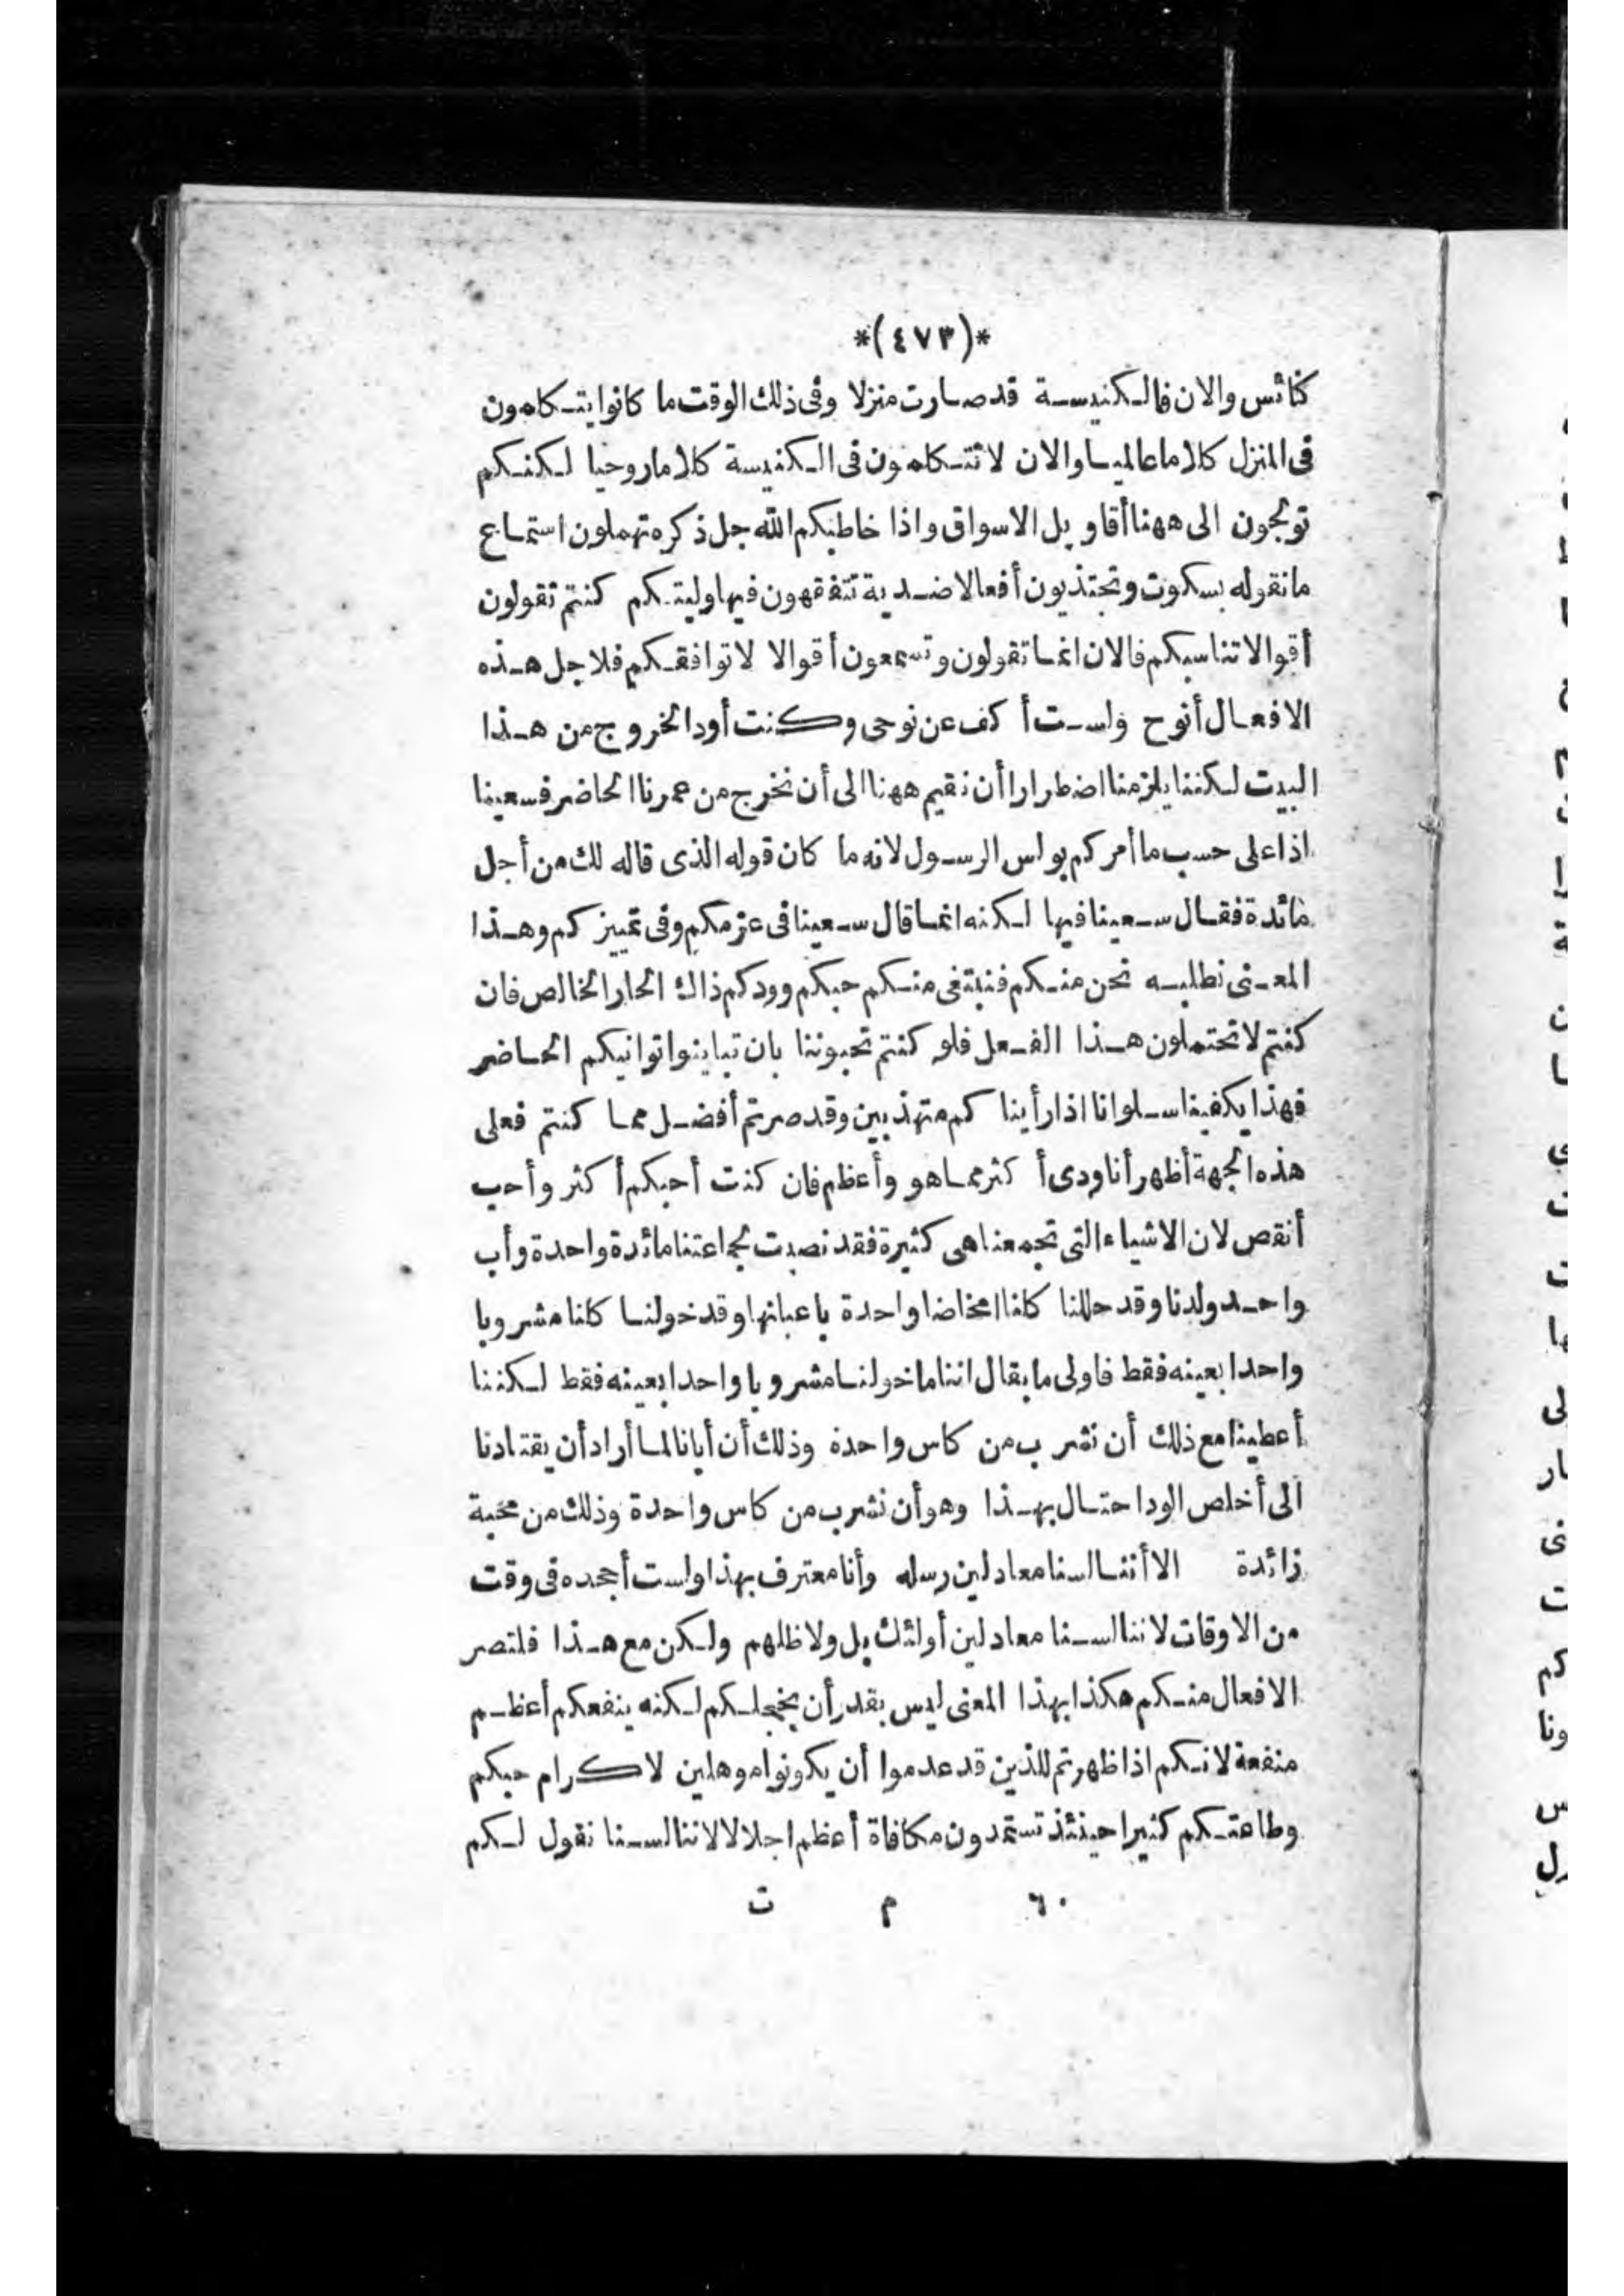 *(٤٧٣)*
كنائس والان فالكنيسة قد صارت منزلا وفى ذلك الوقت ما كانوا يتكلمون
فى المنزل كلاما عالميا والان لا تتكلمون فى الكنيسة كلاما روحيا لكنكم
تولجون الى ههنا أقاويل الاسواق واذا خاطبكم الله جل ذكره تهملون استماع
ما نقوله بسكوت وتجتذبون أفعالا ضدية تتفقهون فيها وليتكم كنتم تقولون
أقوالا تناسبكم فالان انما تقولون وتسمعون أقوالا لا توافقكم فلاجل هذه
الافعال أنوح ولست أكف عن نوحى وكنت أود الخروج من هذا
البيت لكننا يلزمنا اضطرارا أن نقيم ههنا الى أن نخرج من عمرنا الحاضر فسعينا
اذا على حسب ما أمركم بولس الرسول لانه ما كان قوله الذى قاله لك من أجل
مائدة فقال سعينا فيها لكنه انما قال سعينا فى عزمكم وفى تمييزكم وهذا
المعنى نطلبه نحن منكم فنبتغى منكم حبكم وودكم ذاك الحار الخالص فان
كنتم لا تحتملون هذا الفعل فلو كنتم تحبوننا بان تباينوا توانيكم الحاضر
فهذا يكفينا سلوانا اذا رأيناكم متهذبين وقد صرتم أفضل مما كنتم فعلى
هذه الجهة أظهر أنا ودى أكثر مما هو وأعظم فان كنت أحبكم أكثر وأحب
أنقص لان الاشياء التى تجمعنا هى كثيرة فقد نصبت لجماعتنا مائدة واحدة وأب
واحد ولدنا وقد حللنا كلنا امخاضا واحدة باعيانها وقد خولنا كلنا مشروبا
واحدا بعينه فقط فاولى ما يقال اننا ما خولنا مشروبا واحدا بعينه فقط لكننا
أعطينا مع ذلك أن نشرب من كاس واحدة وذلك أن أبانا لما أراد أن يقتادنا
الى أخلص الود احتال بهذا وهو أن نشرب من كاس واحدة وذلك من محبة
زائدة الا أننا لسنا معادلين رسله وأنا معترف بهذا ولست أجحده فى وقت
من الاوقات لاننا لسنا معادلين أولئك بل ولا ظلهم ولكن مع هذا فلتصر
الافعال منكم هكذا بهذا المعنى ليس بقدر أن يخجلكم لكنه ينفعكم أعظم
منفعة لانكم اذا ظهرتم للذين قد عدموا أن يكونوا موهلين لاكرام حبكم
وطاعتكم كثيرا حينئذ تستمدون مكافاة أعظم اجلالا لاننا لسنا نقول لكم
٦٠ م ت